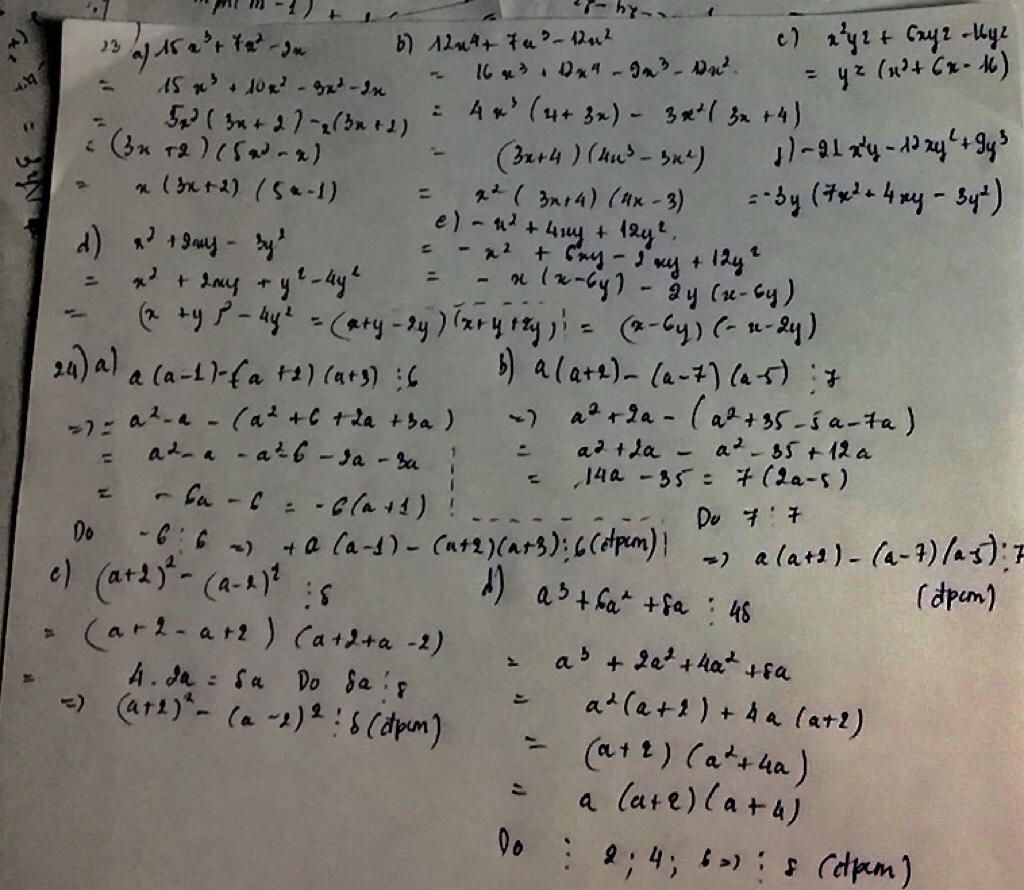 23 a) 15x³ + 7x² - 2x
= 15x³ + 10x² - 3x² - 2x
= 5x²(3x + 2) - x(3x + 2)
= (3x + 2)(5x² - x)
= x(3x+2)(5x-1)
b) 12x⁴ + 7x³ - 12x²
= 16x³ + 12x⁴ - 9x³ - 12x²
= 4x³(4 + 3x) - 3x²(3x + 4)
= (3x+4)(4x³ - 3x²)
= x²(3x+4)(4x - 3)
c) x²yz + 6xyz - 16yz
= yz(x² + 6x - 16)
f) -21x²y - 12xy² + 9y³
= -3y(7x² + 4xy - 3y²)
d) x² + 2xy - 3y²
= x² + 2xy + y² - 4y²
= (x + y)² - 4y² = (x+y-2y)(x+y+2y)
e) -x² + 4xy + 12y²
= -x² + 6xy - 2xy + 12y²
= -x(x-6y) - 2y(x-6y)
= (x-6y)(-x-2y)
24) a) a(a-1) - (a+2)(a+3) ⋮ 6
=> = a² - a - (a² + 6 + 2a + 3a)
= a² - a - a² - 6 - 2a - 3a
= -6a - 6 = -6(a+1)
Do -6 ⋮ 6 => + a(a-1) - (a+2)(a+3) ⋮ 6 (đpcm)
b) a(a+2) - (a-7)(a-5) ⋮ 7
=> a² + 2a - (a² + 35 - 5a - 7a)
= a² + 2a - a² - 35 + 12a
= 14a - 35 = 7(2a-5)
Do 7 ⋮ 7
=> a(a+2) - (a-7)(a-5) ⋮ 7
(đpcm)
c) (a+2)² - (a-2)² ⋮ 8
= (a+2-a+2)(a+2+a-2)
= 4.2a = 8a Do 8a ⋮ 8
=> (a+2)² - (a-2)² ⋮ 8 (đpcm)
d) a³ + 6a² + 8a ⋮ 48
= a³ + 2a² + 4a² + 8a
= a²(a+2) + 4a(a+2)
= (a+2)(a² + 4a)
= a(a+2)(a+4)
Do ⋮ 2; 4; 6 => ⋮ 8 (đpcm)